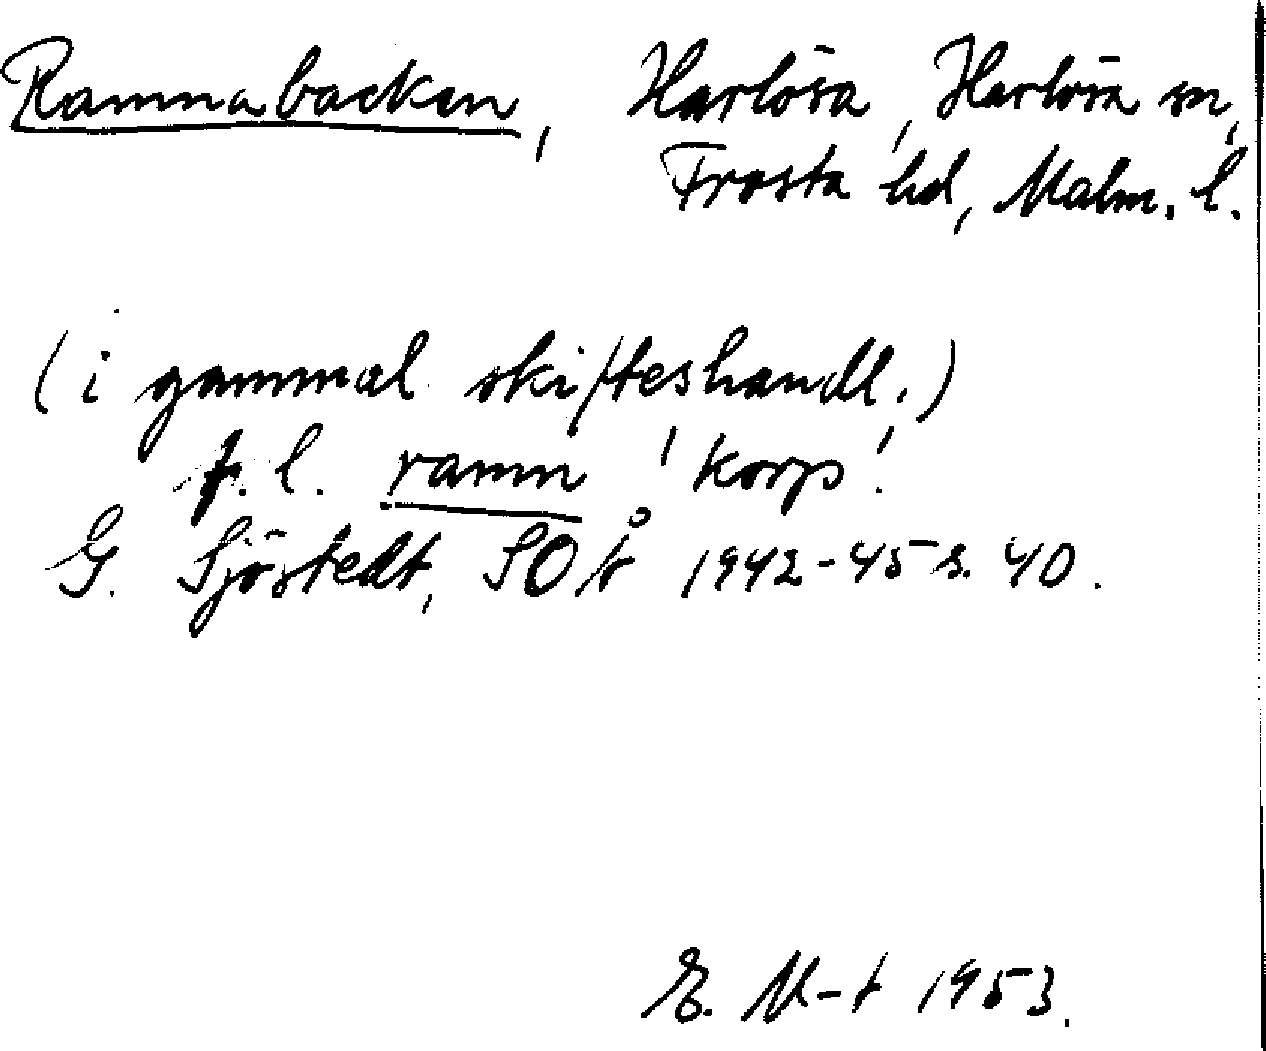 Ramnabacken, Harlösa, Harlösa sn,
Frosta hd, Malm. l.
(i gammal skifteshandl.)
f. l. ramn 'korp'.
G. Sjöstedt, SOÅ 1942-45 s. 40.
E. M-t 1953.